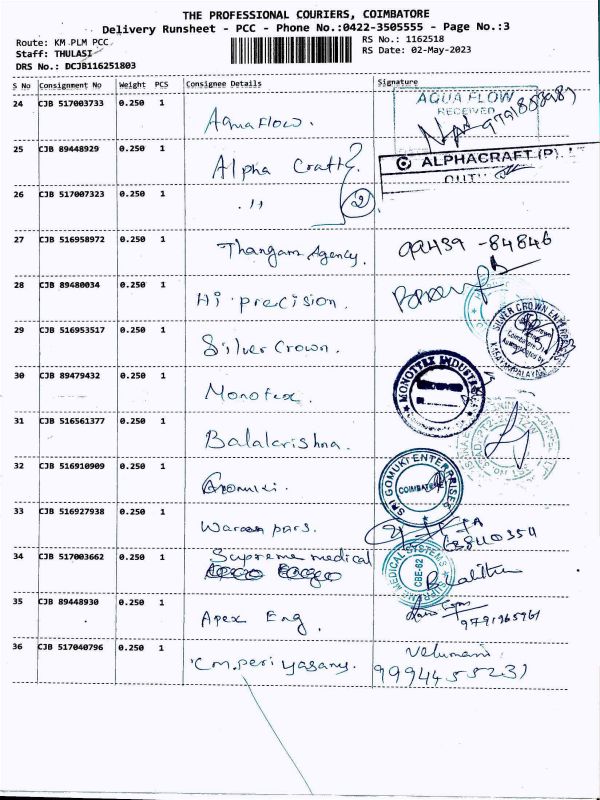 THE PROFESSIONAL COURIERS, COIMBATORE
Delivery Runsheet - PCC - Phone No.:0422-3505555 - Page No.:3
Route: KM PLM PCC
RS No.: 1162518
Staff: THULASI
RS Date: 02-May-2023
DRS No.: DCJB116251803
S No Consignment No Weight PCS Consignee Details Signature
24 CJB 517003733 0.250 1 Aquaflow.
AQUA FLOW
RECEIVED
25 CJB 89448929 0.250 1 Alpha Craft
ALPHACRAFT (P).
26 CJB 517007323 0.250 1 . 11 2
27 CJB 516958972 0.250 1 Thangam Agency. 99439 - 84846
28 CJB 89480034 0.250 1 Hi precision.
29 CJB 516953517 0.250 1 Silver Crown.
SILVER CROWN
30 CJB 89479432 0.250 1 Monotex
31 CJB 516561377 0.250 1 Balakrishna.
32 CJB 516910909 0.250 1 Gomuki.
SRI GOMUKI ENTERPRISES
COIMBATORE
33 CJB 516927938 0.250 1
34 CJB 517003662 0.250 1 Supreme medical
MEDICAL SYSTEMS
CBE-62
35 CJB 89448930 0.250 1 Apex Eng.
9791965961
36 CJB 517040796 0.250 1 C.m. periyasamy. Velumani
9994455231